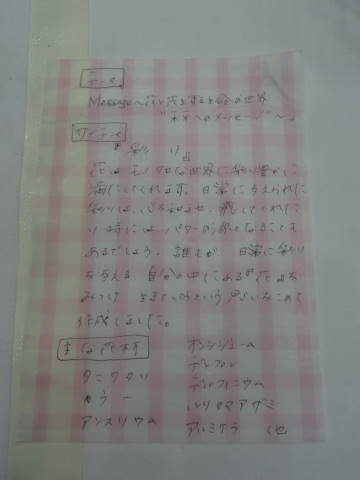 テーマ
Message〜花と花を する 命の世界
"未来へのメッセージ"〜
サブテーマ
『彩り』
花はモノクロな世界に彩り豊かに
満たしてくれます。日常に与えられた
彩りは、心を和ませ、癒してくれた
り時にはパワーの源となることも
あるでしょう。誰もが、日常に彩り
を与える自分の中にある"花"を
みつけ 生きていこうという思いをこめて
作成しました。
主な花材
タニワタリ
カラー
アンスリウム
オンシジューム
デンファレ
デルフィニウム
ルリタマアザミ
アルミケラ 他